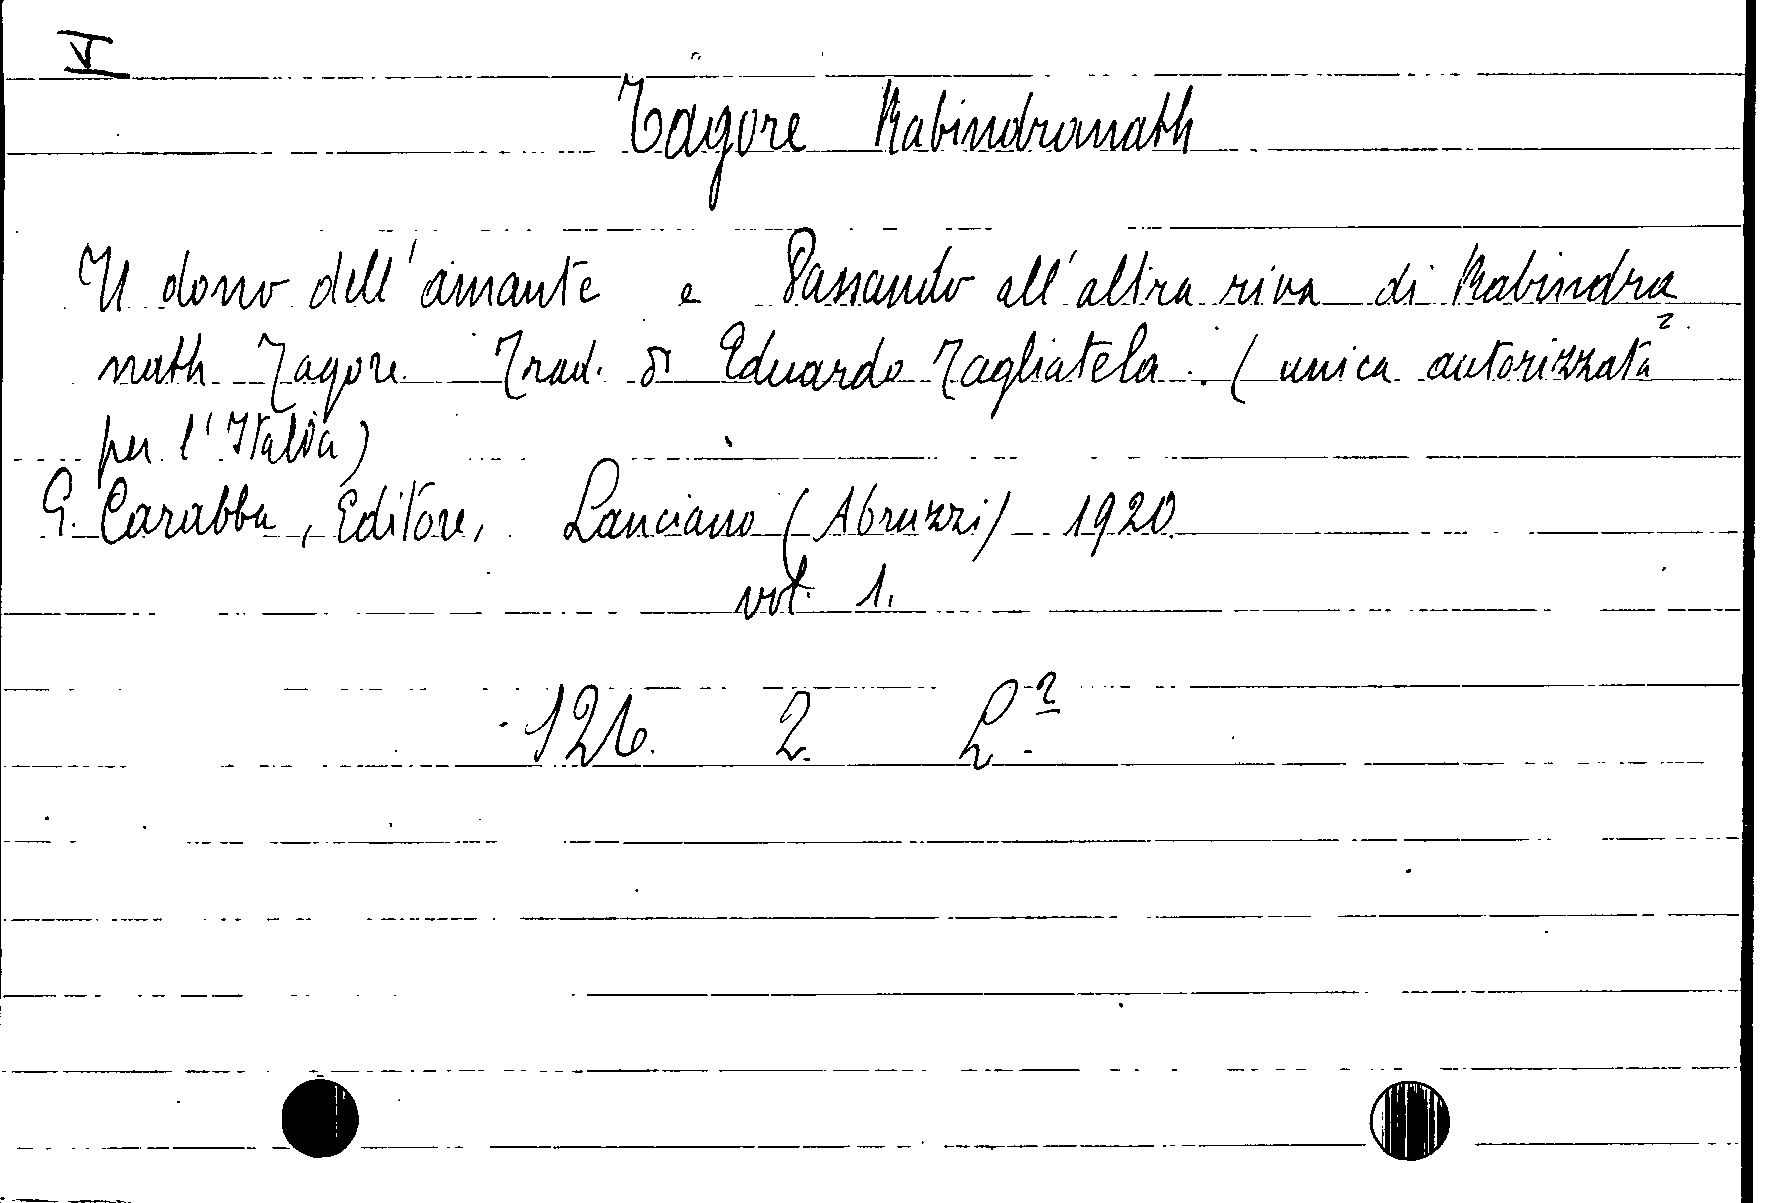 V
Tagore Rabindranath
Il dono dell'amante e Passando all'altra riva di Rabindra
nath Tagore Trad. di Eduardo Tagliatela. (unica autorizzata
per l'Italia)
G. Carabba, Editore, Lanciano (Abruzzi) 1920
vol. 1.
126. 2.